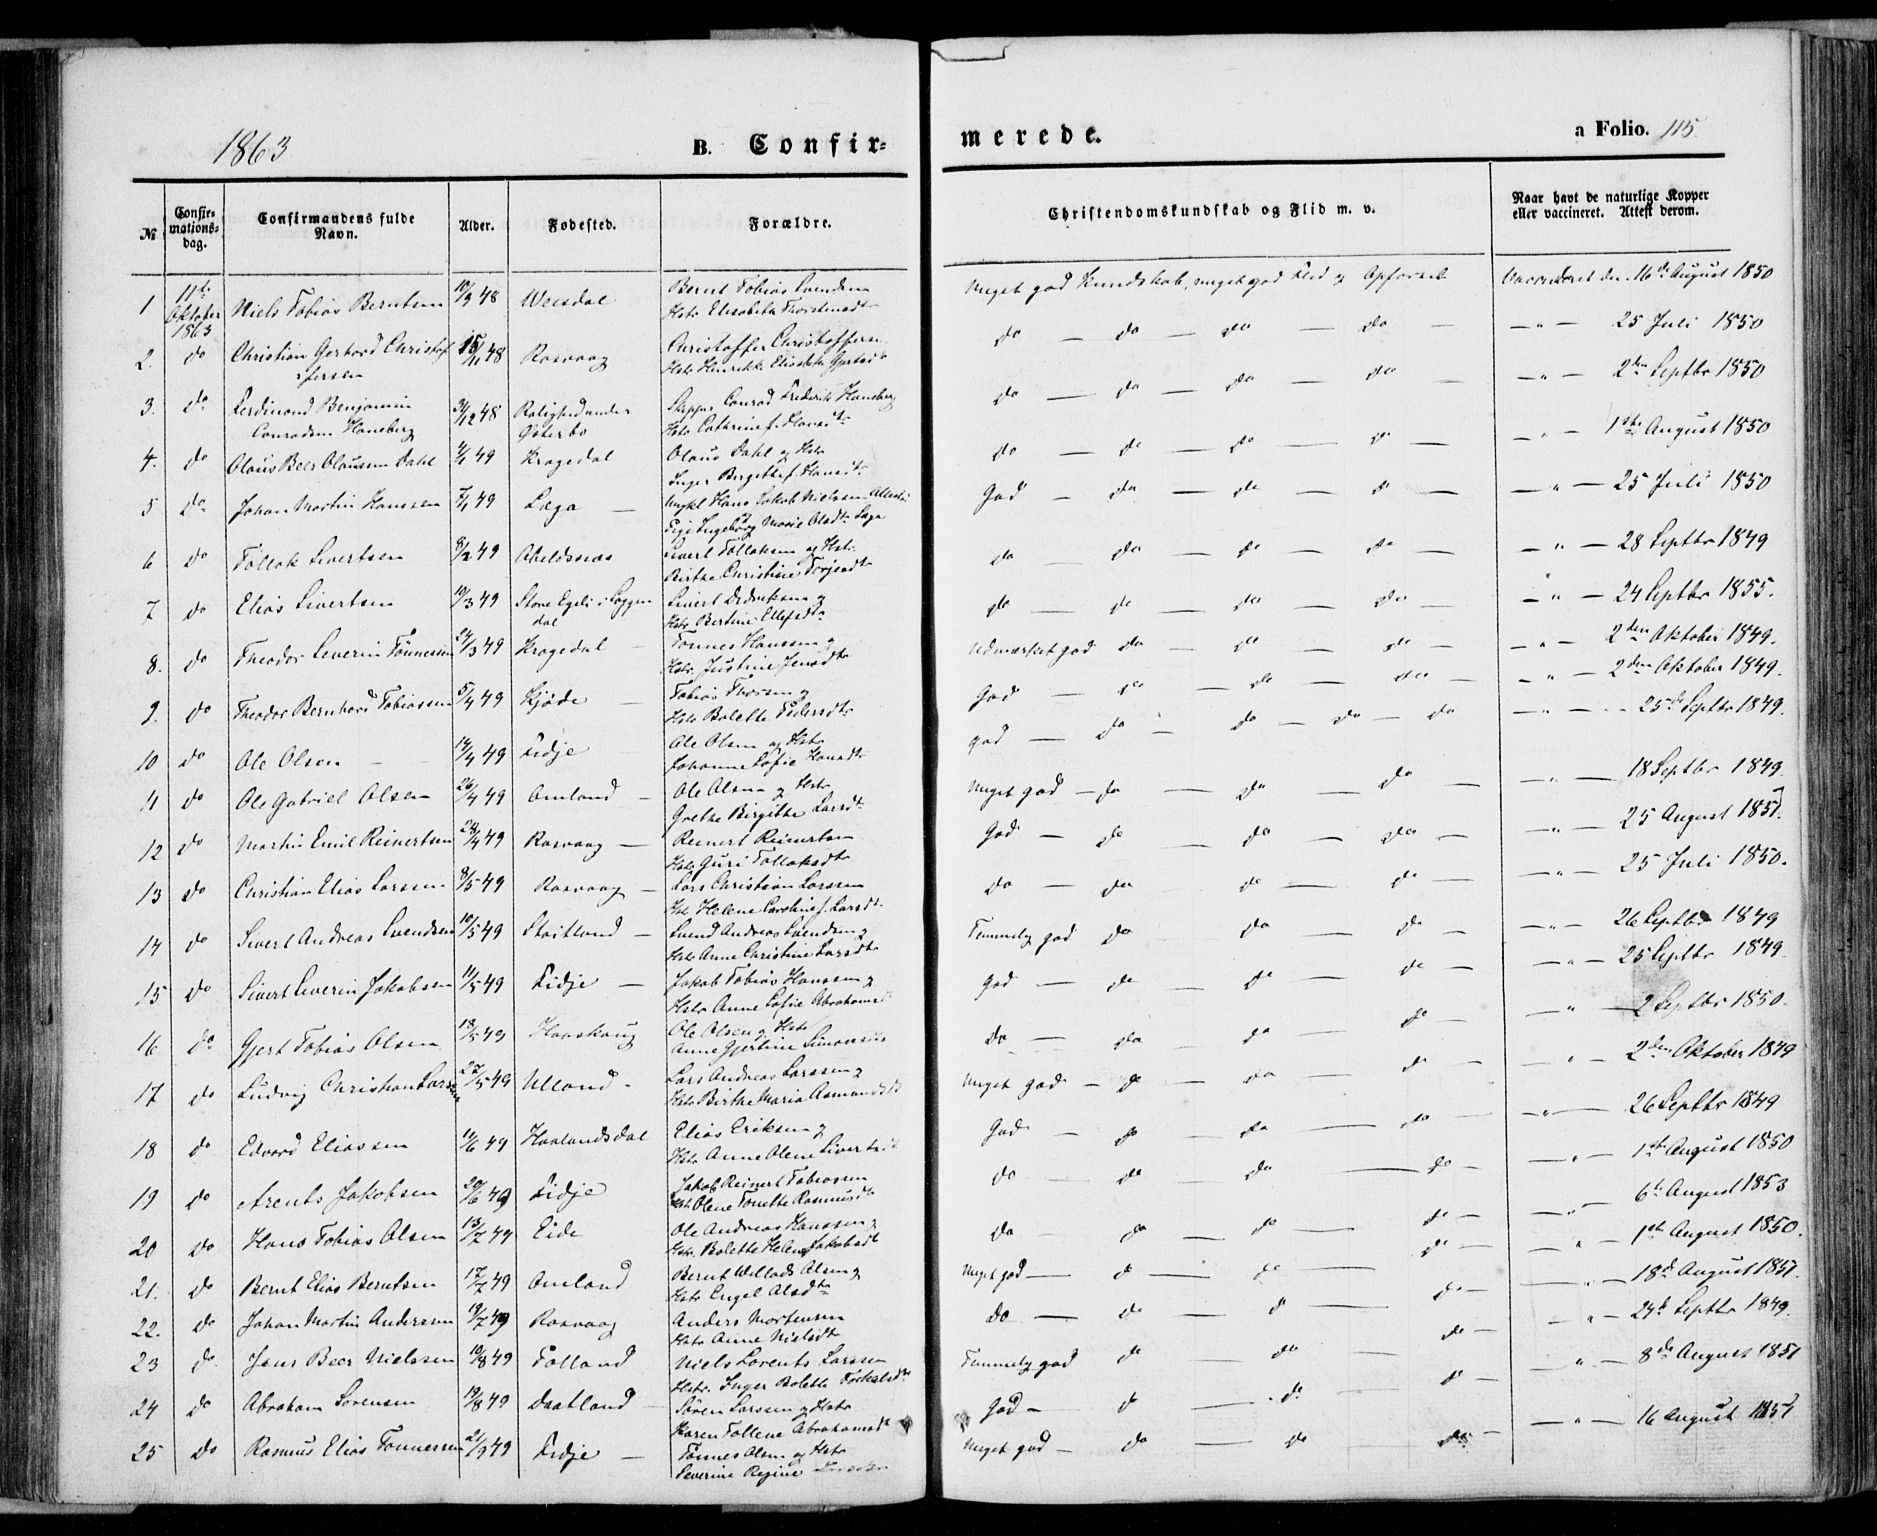 1863
B. Confir-
merede.
a Folio. 115.
№
Confir-
mations-
dag.
Confirmandens fulde
Navn.
Alder.
Fødested.
Forældre.
Christendomskundskab og Flid m. v.
Naar havt de naturlige Kopper
eller vaccineret. Attest derom.
1 11te Oktober 1863 Niels Tobias Berntsen 10/9 48 Bernt Tobias Svendsen
Hstr Elisabeth Thorstensdtr
Meget god Kundskab, meget god Flid og Opførsel Vaccineret den 16de August 1850
2. do Christian Gerhard Christof-
fersen 15/11 48 Rosvaag Christoffer Christoffersen
Hstr Henrikke Elisabeth
do — do — do — do — — " — 25 Juli 1850
3. do Ferdinand Benjamin
Conradsen Haneberg 31/12 48 Roligheden under
Østerbø Skipper Conrad Frederik Haneberg
Hstr Cathrine f.
do — do — do — do — " — 2den Septbr 1850
4. do Olaus Beer Olausen Dahl 49 Kragedal Olaus Dahl og Hstr
Inger Birgitte f. Hansdtr
do — do — do — do — " — 1ste August 1850
5 do Johan Martin Hanssen 7/1 49 Lega — Ungkl Hans Jakob Nielssen
Pige Ingeborg Marie Olsdtr Lega
God — do — do — do — — " — 25 Juli 1850
6 do Tollak Sivertsen 8/2 49 Abeldsnæs Sivert Tollaksen og Hstr
Birthe Christine Terjesdtr
do — do — do — do — — " — 28 Septbr 1849
7 do Elias Sivertsen 10/3 49 Store Egeli i Loggen
dal Sivert Didriksen og
Hstr Bertine Ellefsdtr
do — do — do — do — — " — 24 Septbr 1855.
8. do Theodor Severin Tønnessen 24/3 49 Kragedal — Tønnes Hanssen og
Hstr Justine Jensdtr
Udmærket god do — do — do — — " — 2den Oktober 1849.
9. do Theodor Bernhard Tobiassen 5/4 49 — Tobias Thorsen og
Hstr Bolette Pedersdtr
God — do — do — do — — " — 2den Oktober 1849.
10 do Ole Olsen 14/4 49 Fidje Ole Olsen og Hstr
Johanne Sofie Hansdtr
god — do — do — do — do — " — 25de Septbr 1849.
11 do Ole Gabriel Olsen 26/4 49 Omland — Ole Olsen og Hstr
Grethe Birgitte Larsdtr
Meget god — do — do — do — — " — 18 Septbr 1849
12 do Martin Emil Reinertsen 28/4 49 Rosvaag — Reinert Reinertsen
Hstr Guri Tollaksdtr
God — do — do — do — — " — 25 August 1851.
13 do Christian Elias Larssen 8/5 49 Rosvaag — Lars Christian Larssen
Hstr Helene Caroline f. Larsdtr
do — do — do — do — — " — 25 Juli 1850.
14 do Sivert Andreas Svendsen 10/5 49 Stoitland — Svend Andreas Svendsen og
Hstr Anne Christine Larsdtr
Temmelig god do — do — do — — " — 26 Septbr 1849
15 do Sivert Severin Jakobsen 11/5 49 Fidje — Jakob Tobias Hanssen og
Hstr Anne Sofie Abrahamsd
God — do — do — do — — " — 25 Septbr 1849
16 do Gjert Tobias Olsen 18/5 49 Haaskaug Ole Olsen og Hstr
Anne Gjertine Simonsdtr
Do — do — do — do — " 2 Septbr 1850.
17 do Ludvig Christian Larssen 27/5 49 Ulland — Lars Andreas Larssen og
Hstr Birthe Maria
Meget god — do — do — do — " — 2den Oktober 1849
18 do Edvard Eliassen 11/6 49 Haalandsdal Elias Eriksen og
Hstr Anne Olene Sivertsdt
God — do — do — do — " — 26 Septbr 1849
19 do Arents Jakobsen 20/6 49 Fidje Jakob Reinert Tobiassen
Hstr Olene Tonette Rasmusdtr
do — do — do — do — — " — 1ste August 1850
20 do Hans Tobias Olsen 13/7 49 Eide Ole Andreas Hanssen og
Hstr Bolette Helene Jakobsdt
Do — do — do — do — — " — 6te August 1853
21. do Bernt Elias Berntsen 17/7 49 Omland Bernt Willads Olsen og
Hstr Engel Olsdtr
Meget god — do — do — do — — " — 1ste August 1850.
22. do Johan Martin Andersen 19/7 49 Rosvaag Anders Mortensen
Hstr Anne Nielsdtr
Do — do — do — do — — " — 18de August 1851.
23 do Jens Beer Nielssen 10/8 49 Tolland Niels Lorents Larssen
Hstr. Inger Bolette
Temmelig god do — do — do — " — 24de Septbr 1849.
24 do Abraham Sørensen 19/8 49 Daatland — Søren Larssen og Hstr
Karen Tollene Abrahamsdt
God — do — do — do — " — 8de August 1851
25 do Rasmus Elias Tønnessen 21/9 49 Fidje — Tønnes Olsen og Hstr
Severine Regine
Meget god — do — do — do — — " — 16 August 1851